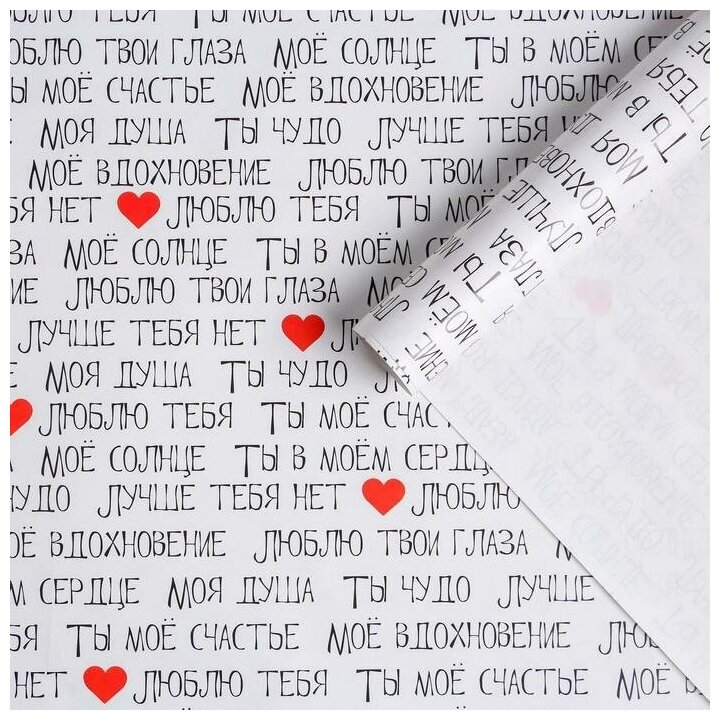 ЛЮБЛЮ ТЕБЯ ТЫ МОЁ СЧАСТЬЕ МОЁ ВДОХНОВЕНИЕ
ЮБЛЮ ТВОИ ГЛАЗА МОЁ СОЛНЦЕ ТЫ В МОЁМ СЕР
Ы МОЁ СЧАСТЬЕ МОЁ ВДОХНОВЕНИЕ ЛЮБЛЮ
МОЯ ДУША ТЫ ЧУДО ЛУЧШЕ ТЕБЯ Н
МОЁ ВДОХНОВЕНИЕ ЛЮБЛЮ ТВОИ ГЛА
БЯ НЕТ ЛЮБЛЮ ТЕБЯ ТЫ МОЁ
ЗА МОЁ СОЛНЦЕ ТЫ В МОЁМ СЕ
ИЕ ЛЮБЛЮ ТВОИ ГЛАЗА МО
ЛУЧШЕ ТЕБЯ НЕТ Л
Е МОЯ ДУША ТЫ ЧУДО Л
ЛЮБЛЮ ТЕБЯ ТЫ МОЁ СЧАС
МОЁ СОЛНЦЕ ТЫ В МОЁМ СЕРДЦЕ
ЧУДО ЛУЧШЕ ТЕБЯ НЕТ ЛЮБЛЮ
ОЁ ВДОХНОВЕНИЕ ЛЮБЛЮ ТВОИ ГЛАЗА М
М СЕРДЦЕ МОЯ ДУША ТЫ ЧУДО ЛУЧШЕ
БЯ ТЫ МОЁ СЧАСТЬЕ МОЁ ВДОХНОВЕНИЕ ЛЮБ
НЕТ ЛЮБЛЮ ТЕБЯ ТЫ МОЁ СЧАСТЬЕ МОЁ В